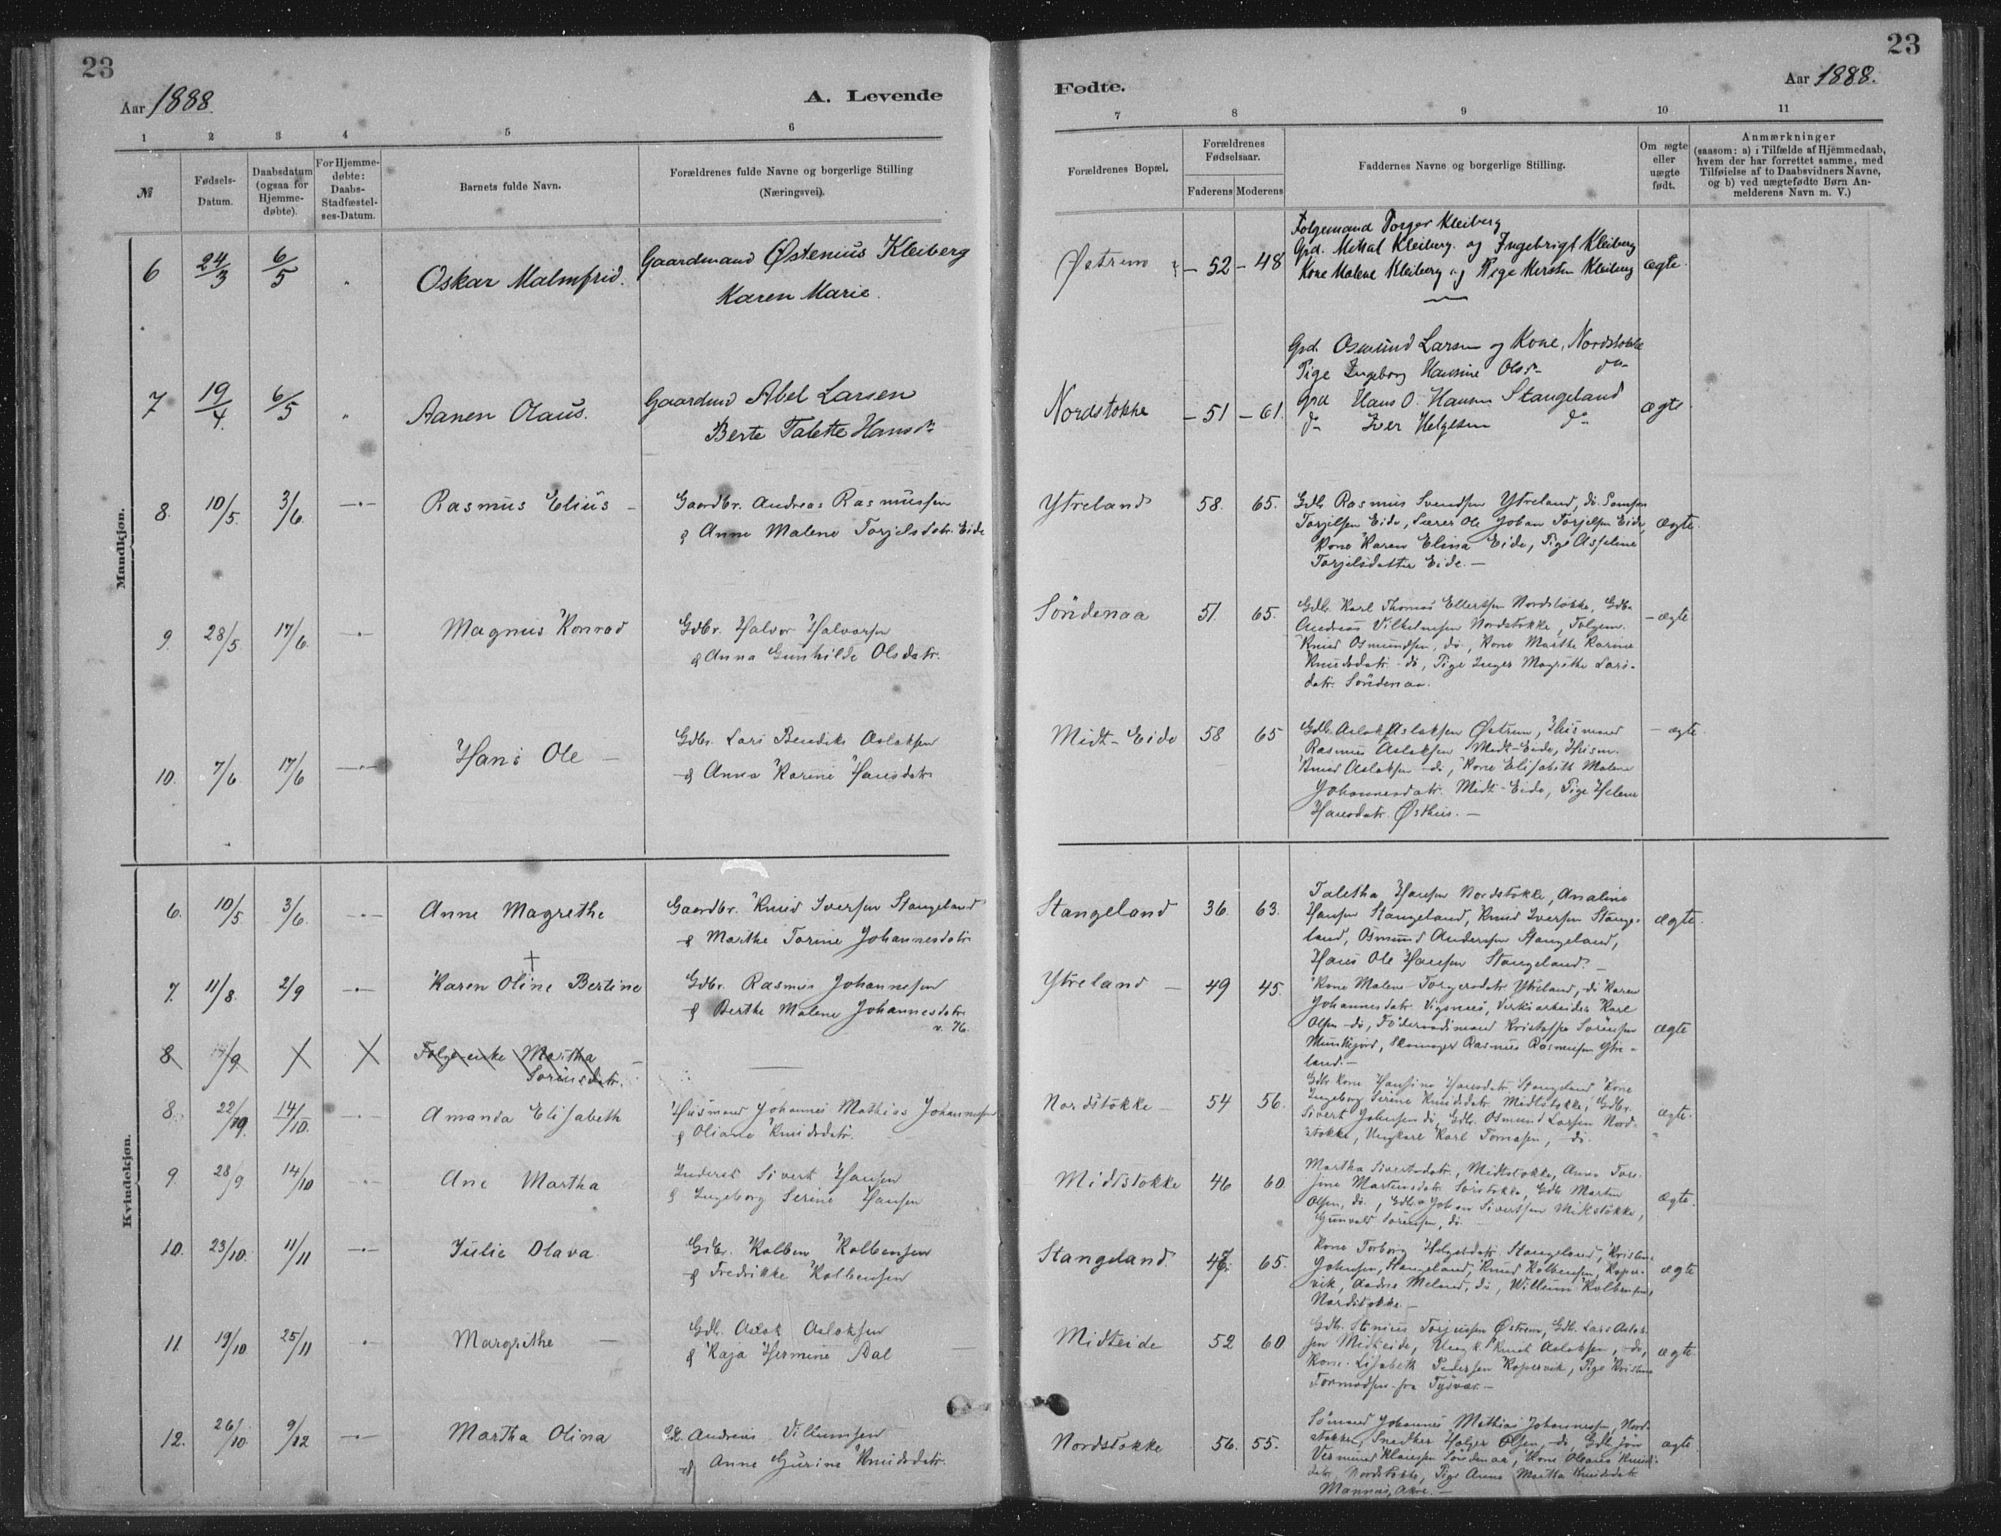 23
Aar 1888.
A. Levende
1 2 3 4 5 6
№
Fødsels-
Datum.
Daabsdatum
(ogsaa for
Hjemme-
døbte).
For Hjemme-
døbte:
Daabs-
Stadfæstel-
ses-Datum.
Barnets fulde Navn.
Forældrenes fulde Navne og borgerlige Stilling
(Næringsvei).
Mandkjøn.
6 24/3 6/5 Oskar Malmfrid. Gaardmand Østenius Kleiberg
Karen Marie.
7 19/4. 6/5 Aanen Olaus. Gaardmd Abel Larsen
Berte Talette Hansdr
8. 10/5. 3/6. Rasmus Elius Gaardbr. Andreas Rasmussen
& Anne Malene Torjelsdatr. Eide
9. 28/5 17/6. Magnus Konrad Gdbr. Halvor Halvorsen
& Anna Gunhilde Olsdatr.
10. 7/6. 17/6 Hans Ole Gdbr. Lars Bendiks Aslaksen
& Anna Karine Hansdatr
Kvindekjøn.
6. 10/5 3/6. Anne Magrethe Gaardbr. Knud Iversen Stangeland
& Marthe Torine Johannesdatr
7. 11/8. 2/9 Karen Oline Bertine Gdbr. Rasmus Johannesen
& Berthe Malene Johannesdatr
v. 76.
8 /9 Følgeenke Martha
Sørensdatr.
8. 22/9. 14/10. Amanda Elisabeth Husmand Johannes Mathias Johannesen
& Oliane Knudsdatr.
9. 28/9 14/10 Ane Martha Inderst Sivert Hansen
& Ingeborg Serine Hansen
10. 23/10. 11/11 Julie Olava Gdbr. Kolben Kolbensen
& Fredrikke Kolbensen
11. 19/10 25/11 Margrithe Gdb. Aslak Aslaksen
& Kaja Hermine Aal
12. 26/10 9/12 Martha Olina Andreas Villumsen
& Anne Gurine Knudsdatr.
23
Aar 1888.
Fødte.
7 8 9 10 11
Forældrenes Bopæl.
Forældrenes
Fødselsaar.
Faderens Moderens
Faddernes Navne og borgerlige Stilling.
Om ægte
eller
uægte
født.
Anmærkninger
(saasom: a) i Tilfælde af Hjemmedaab,
hvem der har forrettet samme, med
Tilføielse af to Daabsvidners Navne,
og b) ved uægtefødte Børn An-
melderens Navn m. V.)
Følgemand Torger Kleiberg
Grd. Mikal Kleiberg. og Ingebrigt Kleiberg
Østrem 52 48 Kone Malene Kleiberg og Pige Kersten Kleiberg ægte.
Grd. Osmund Larsen og Kone, Nordstokke
Pige Ingeborg Hansine Olsdr do
Nordstokke 51 61. Grd Hans O. Hansen Stangeland ægte
do Iver Helgesen do
Ytreland 58. 65. Gdb. Rasmus Svendsen Ytreland, do. Samson
Torjelsen Eide, Lærer Ole Johan Torjelsen Eide, ægte.
Kone Karen Elina Eide, Pige Asseline
Torjelsdatter Eide.
Søndenaa 51. 65. Gdb. Karl Thomas Ellertsen Nordstokke, Gdb.
Andreas Vilhelmsen Nordstokke, Følgem. ægte
Knud Osmundsen, do., Kone Marthe Karine
Knudsdatr. do, Pige Inger Magrethe Lars-
datr. Søndenaa.
Midt-Eide 58 65 Gdb. Aslak Aslaksen Østrem, Husmand ægte.
Rasmus Aslaksen Midt-Eide, Husm.
Knud Aslaksen do, Kone Elisabeth Malene
Johannesdatr. Midt-Eide, Pige Helene
Hansdatr. Østhus.
Stangeland 36. 63. Taletha Hansen Nordstokke, Analine
Hansen Stangeland, Knud Iversen Stange-
land, Osmund Andersen Stangeland, ægte.
Hans Ole Hansen Stangeland.
Ytreland 49 45. Kone Malene Torgersdatr Ytreland, do Karen
Johannesdatr. Vigsnes, Verksarbeider Karl
Olsen do, Føderaadsmand Kristoffer Sørensen ægte
Munkejord, Skomager Rasmus Rasmussen Ytre-
land.
Nordstokke 54 56. Gdb. Kone Hansine Hansdatr. Stangeland, Kone
Ingeborg Serine Knudsdatr Midtstokke, Gdbr.
Sivert Johnsen do, Gdb. Osmund Larsen Nord- ægte.
stokke, Ungkarl Karl Tomasen, do.
Midtstokke 46 60. Martha Sivertsdatr., Midtstokke, Anne Tor-
jine Martensdatr. Sørstokke, Gdb. Marten
Olsen, do., Gdb. Johan Sivertsen Midtstokke, ægte.
Gunvald Sørensen, do.
Stangeland 47. 65. Kone Torborg Helgesdatr. Stangeland, Kristen
Johnsen, Stangeland, Knud Kolbensen, Koper- ægte
vik, Andrea Meland, do, Willum Kolbensen,
Nordstokke.
Midteide 52 60 Gdb. Stenius Torjussen Østrem, Gdb. Lars Aslak-
sen Midteide, Ungk. Knut Aslaksen, do, ægte.
Kone Lisabeth Pedersen Kopervik, Pige Kristine
Tormodsen fra Tysvær.
Nordstokke 56. 55. Sømand Johannes Mathias Johannesen, Nord-
stokke, Snedker Holger Olsen, do, Gdb. Jon ægte.
Klausen Søndenaa, Kone Oleane Knuds-
datr. Nordstokke, Pige Anna Martha Knudsdatr.
Mannes, Akre.